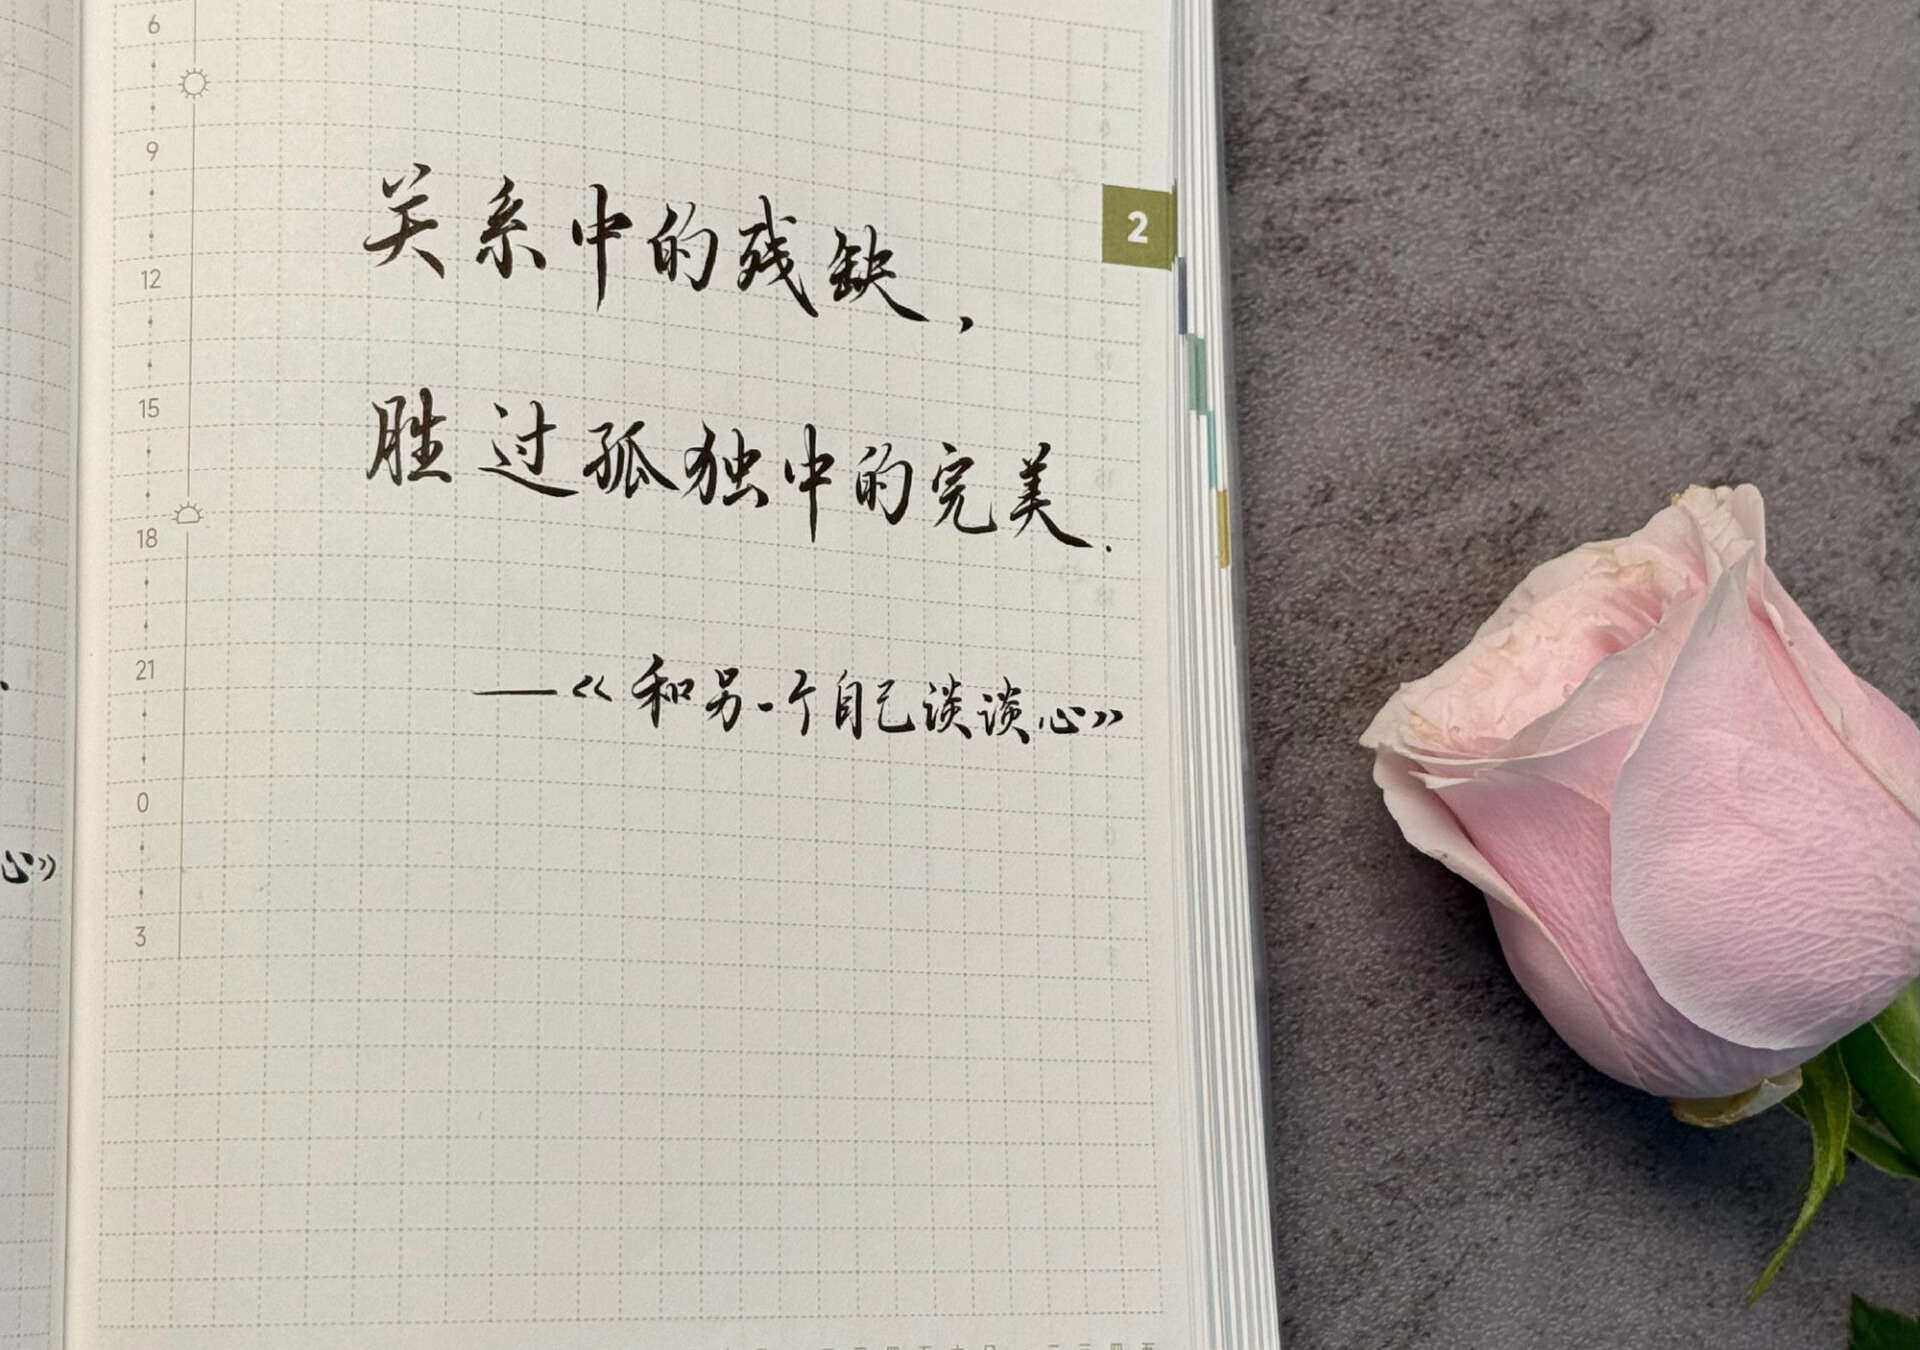 6
9
12
15
18
21
0
3
关系中的残缺,
2
胜过孤独中的完美.
——《和另一个自己谈谈心》
心》